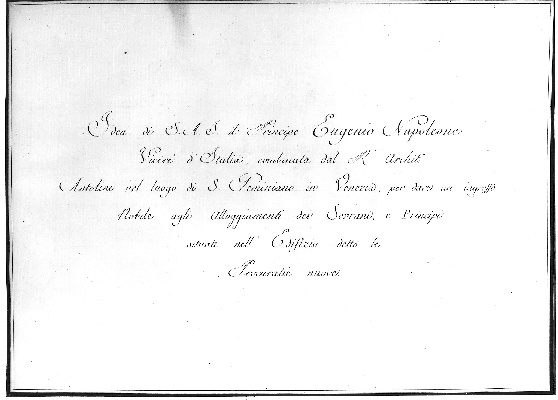 Idea di S. A. S. il Principe Eugenio Napoleone
Vicerè d'Italia, combinata dal R. Archit.
Antolini nel luogo di S. Geminiano in Venezia, per dare un ingresso
Nobile agli Alloggiamenti dei Sovrani, e Principi
situati nell' Edificio detto le
Procuratie nuove.